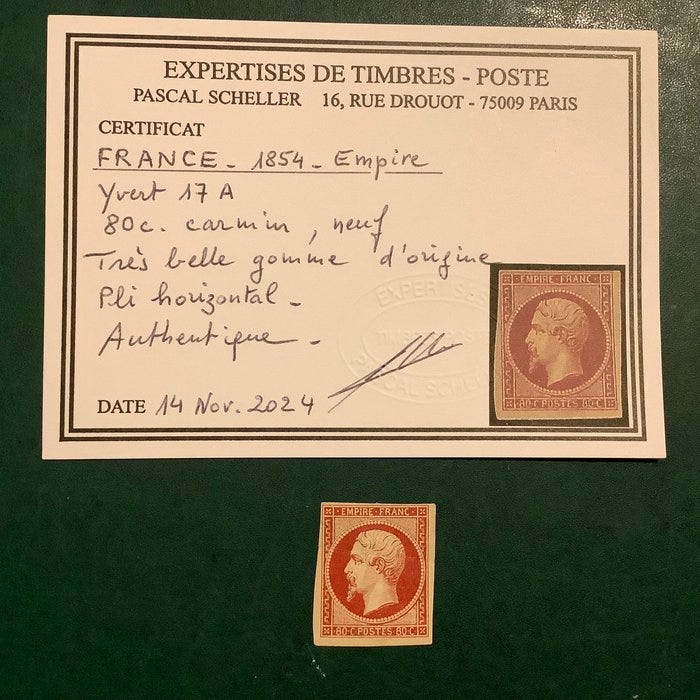 EXPERTISES DE TIMBRES - POSTE
PASCAL SCHELLER 16, RUE DROUOT - 75009 PARIS
CERTIFICAT
FRANCE - 1854 - Empire
Yvert 17 A
80c. carmin, neuf
Très belle gomme d'origine
Pli horizontal -
Authentique -
DATE 14 Nov. 2024
EXPERTISES
PASCAL SCHELLER
EMPIRE · FRANC
80 · C POSTES 80 · C
EMPIRE · FRANC
80 · C POSTES 80 · C